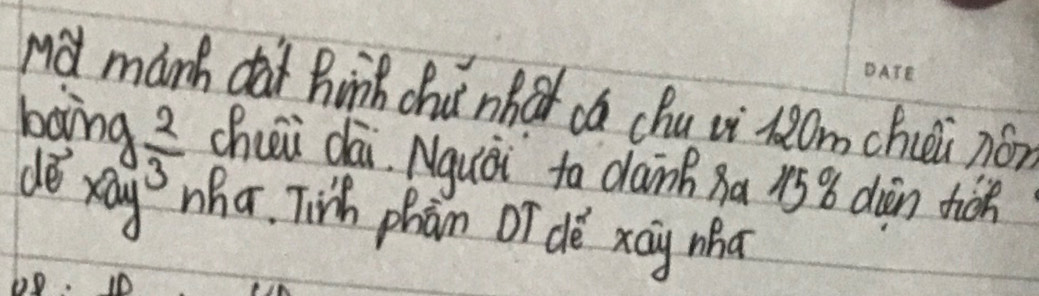 DATE
Một mảnh đất hình chữ nhật có chu vi 120m chiều rộn
bằng 2/3 chiều dài. Người ta dành ra 15% diện tích
để xây nhà. Tính phần DT để xây nhà